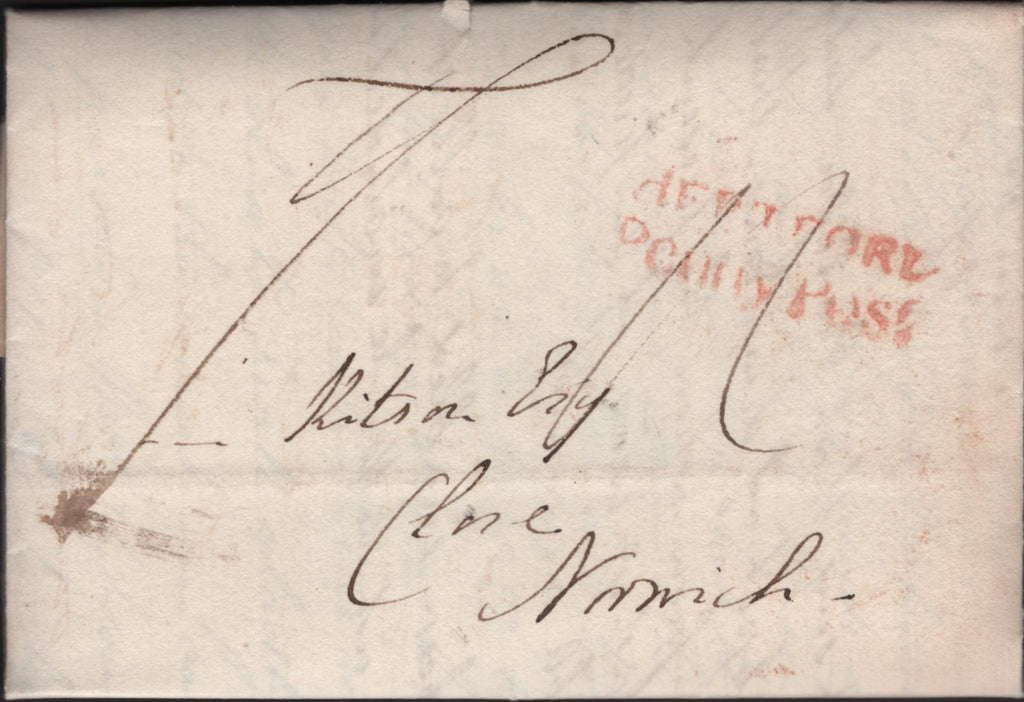 HERTFORD
Penny Post
-- Kitson Esq
Close
Norwich -